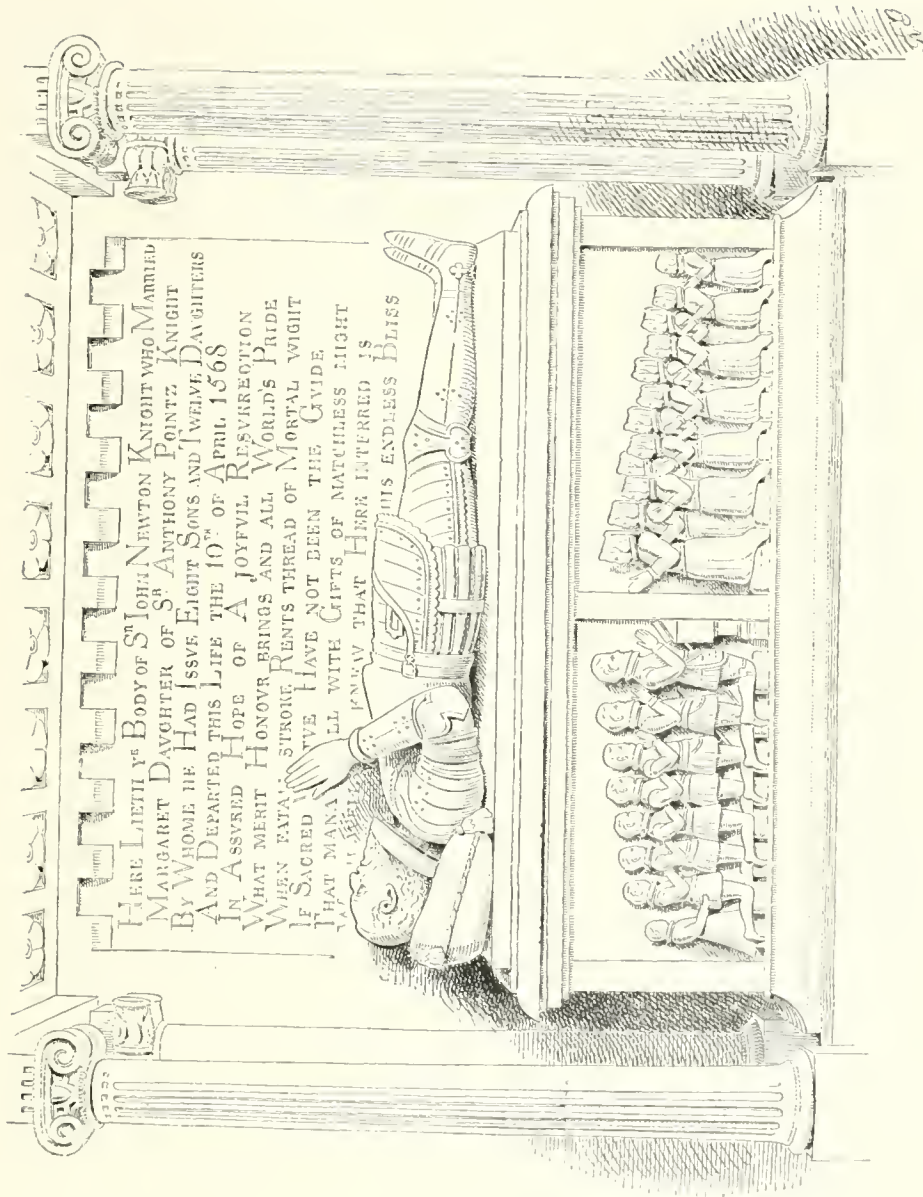 HERE LIETH Yᴱ BODY OF Sᴿ IOHN NEWTON KNIGHT WHO MARRIED
MARGARET DAVGHTER OF Sᴿ ANTHONY POINTZ KNIGHT
BY WHOME HE HAD ISSVE EIGHT SONS AND TWELVE DAVGHTERS
AND DEPARTED THIS LIFE THE 10ᵀᴴ OF APRIL 1568
IN ASSVRED HOPE OF A JOYFVIL RESVRRECTION
WHAT MERIT HONOVR BRINGS AND ALL WORLD'S PRIDE
WHEN FATA STROKE RENTS THREAD OF MORTAL WIGHT
IF SACRED VE HAVE NOT BEEN THE GVIDE
THAT MANA LL WITH GIFTS OF MATCHLESS MIGHT
KNEW THAT HERE INTERRED IS
HIS ENDLESS BLISS